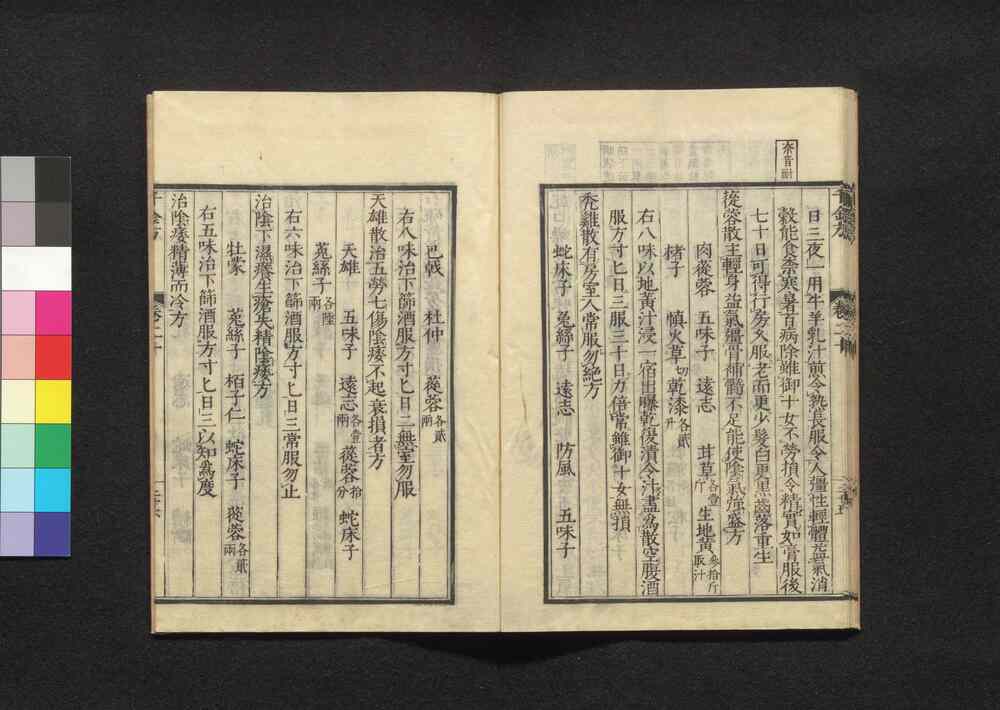 日三夜一用牛羊乳汁煎令熟長服令人彊性輕體益氣消
穀能食柰寒暑百病除雖御十女不勞損令精實如膏服後
七十日可得行房久服老而更少髮白更黑齒落重生
蓯蓉散主輕身益氣彊骨補髓不足能使陰氣強盛方
肉蓯蓉 五味子 遠志 甘草各壹斤 生地黃參拾斤取汁
楮子 慎火草切 乾漆各貳升
右八味以地黃汁浸一宿出曝乾復漬令汁盡為散空腹酒
服方寸匕日三服三十日力倍常雖御十女無損
禿雞散有房室人常服勿絕方
蛇床子 菟絲子 遠志 防風 五味子
巴戟 杜仲 蓯蓉各貳兩
右八味治下篩酒服方寸匕日二無室勿服
天雄散治五勞七傷陰痿不起衰損者方
天雄 五味子 遠志各壹兩 蓯蓉拾分 蛇床子
菟絲子各陸兩
右六味治下篩酒服方寸匕日三常服勿止
治陰下濕癢生瘡失精陰痿方
牡蒙 菟絲子 栢子仁 蛇床子 蓯蓉各貳兩
右五味治下篩酒服方寸匕日三以知為度
治陰痿精薄而冷方